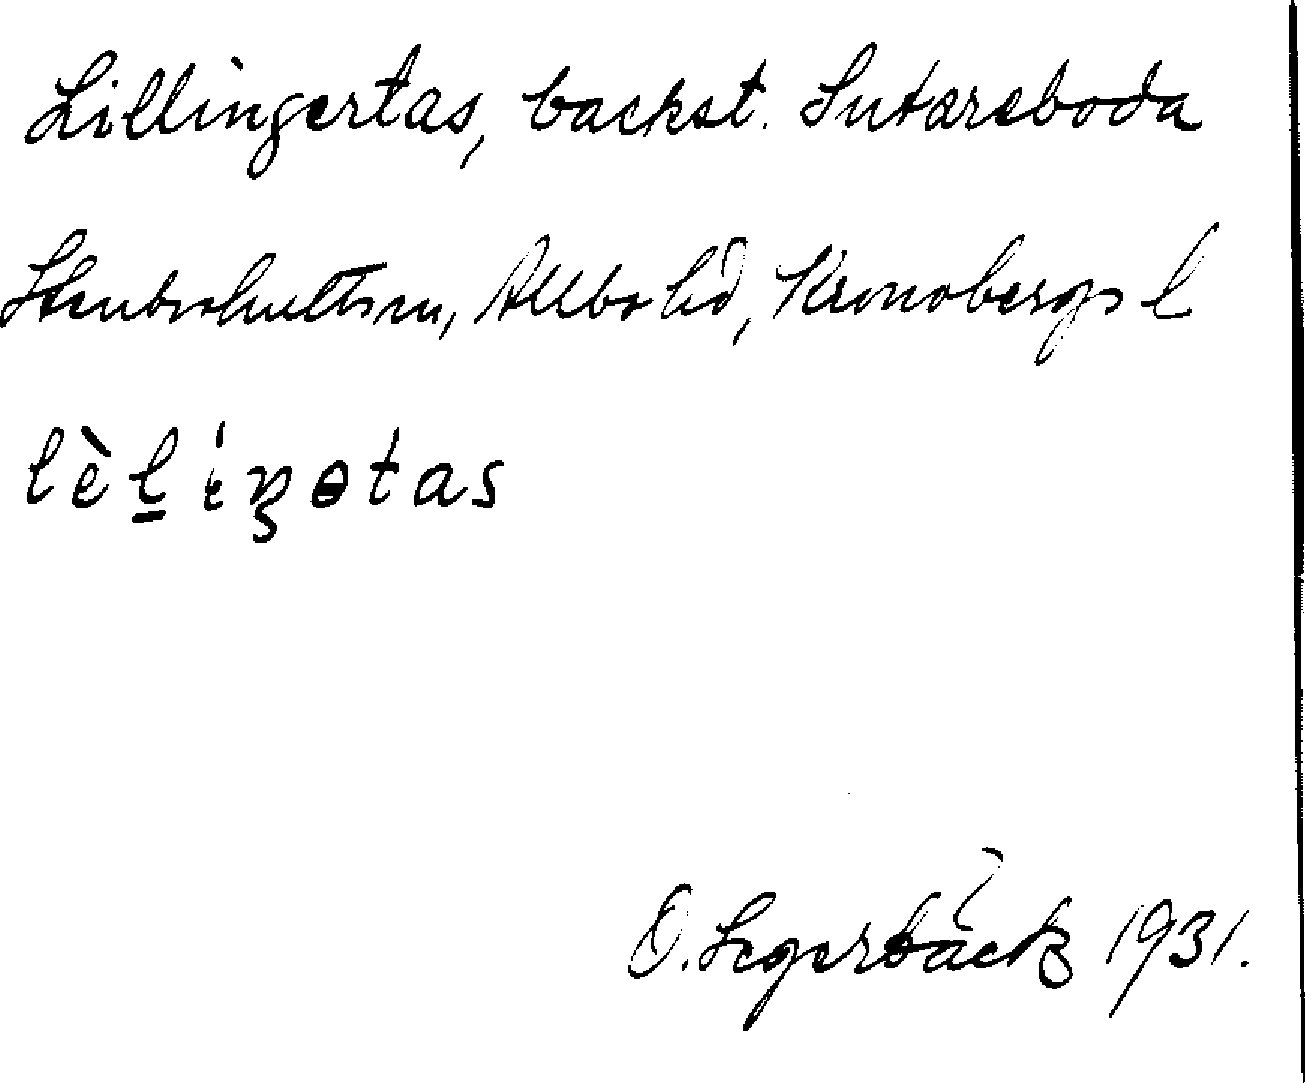 Lillingertas, backst. Sutareboda
Stenbrohults sn, Allbo hd, Kronobergs l
lèl̲íŋɵtas
O. Segerbäck 1931.